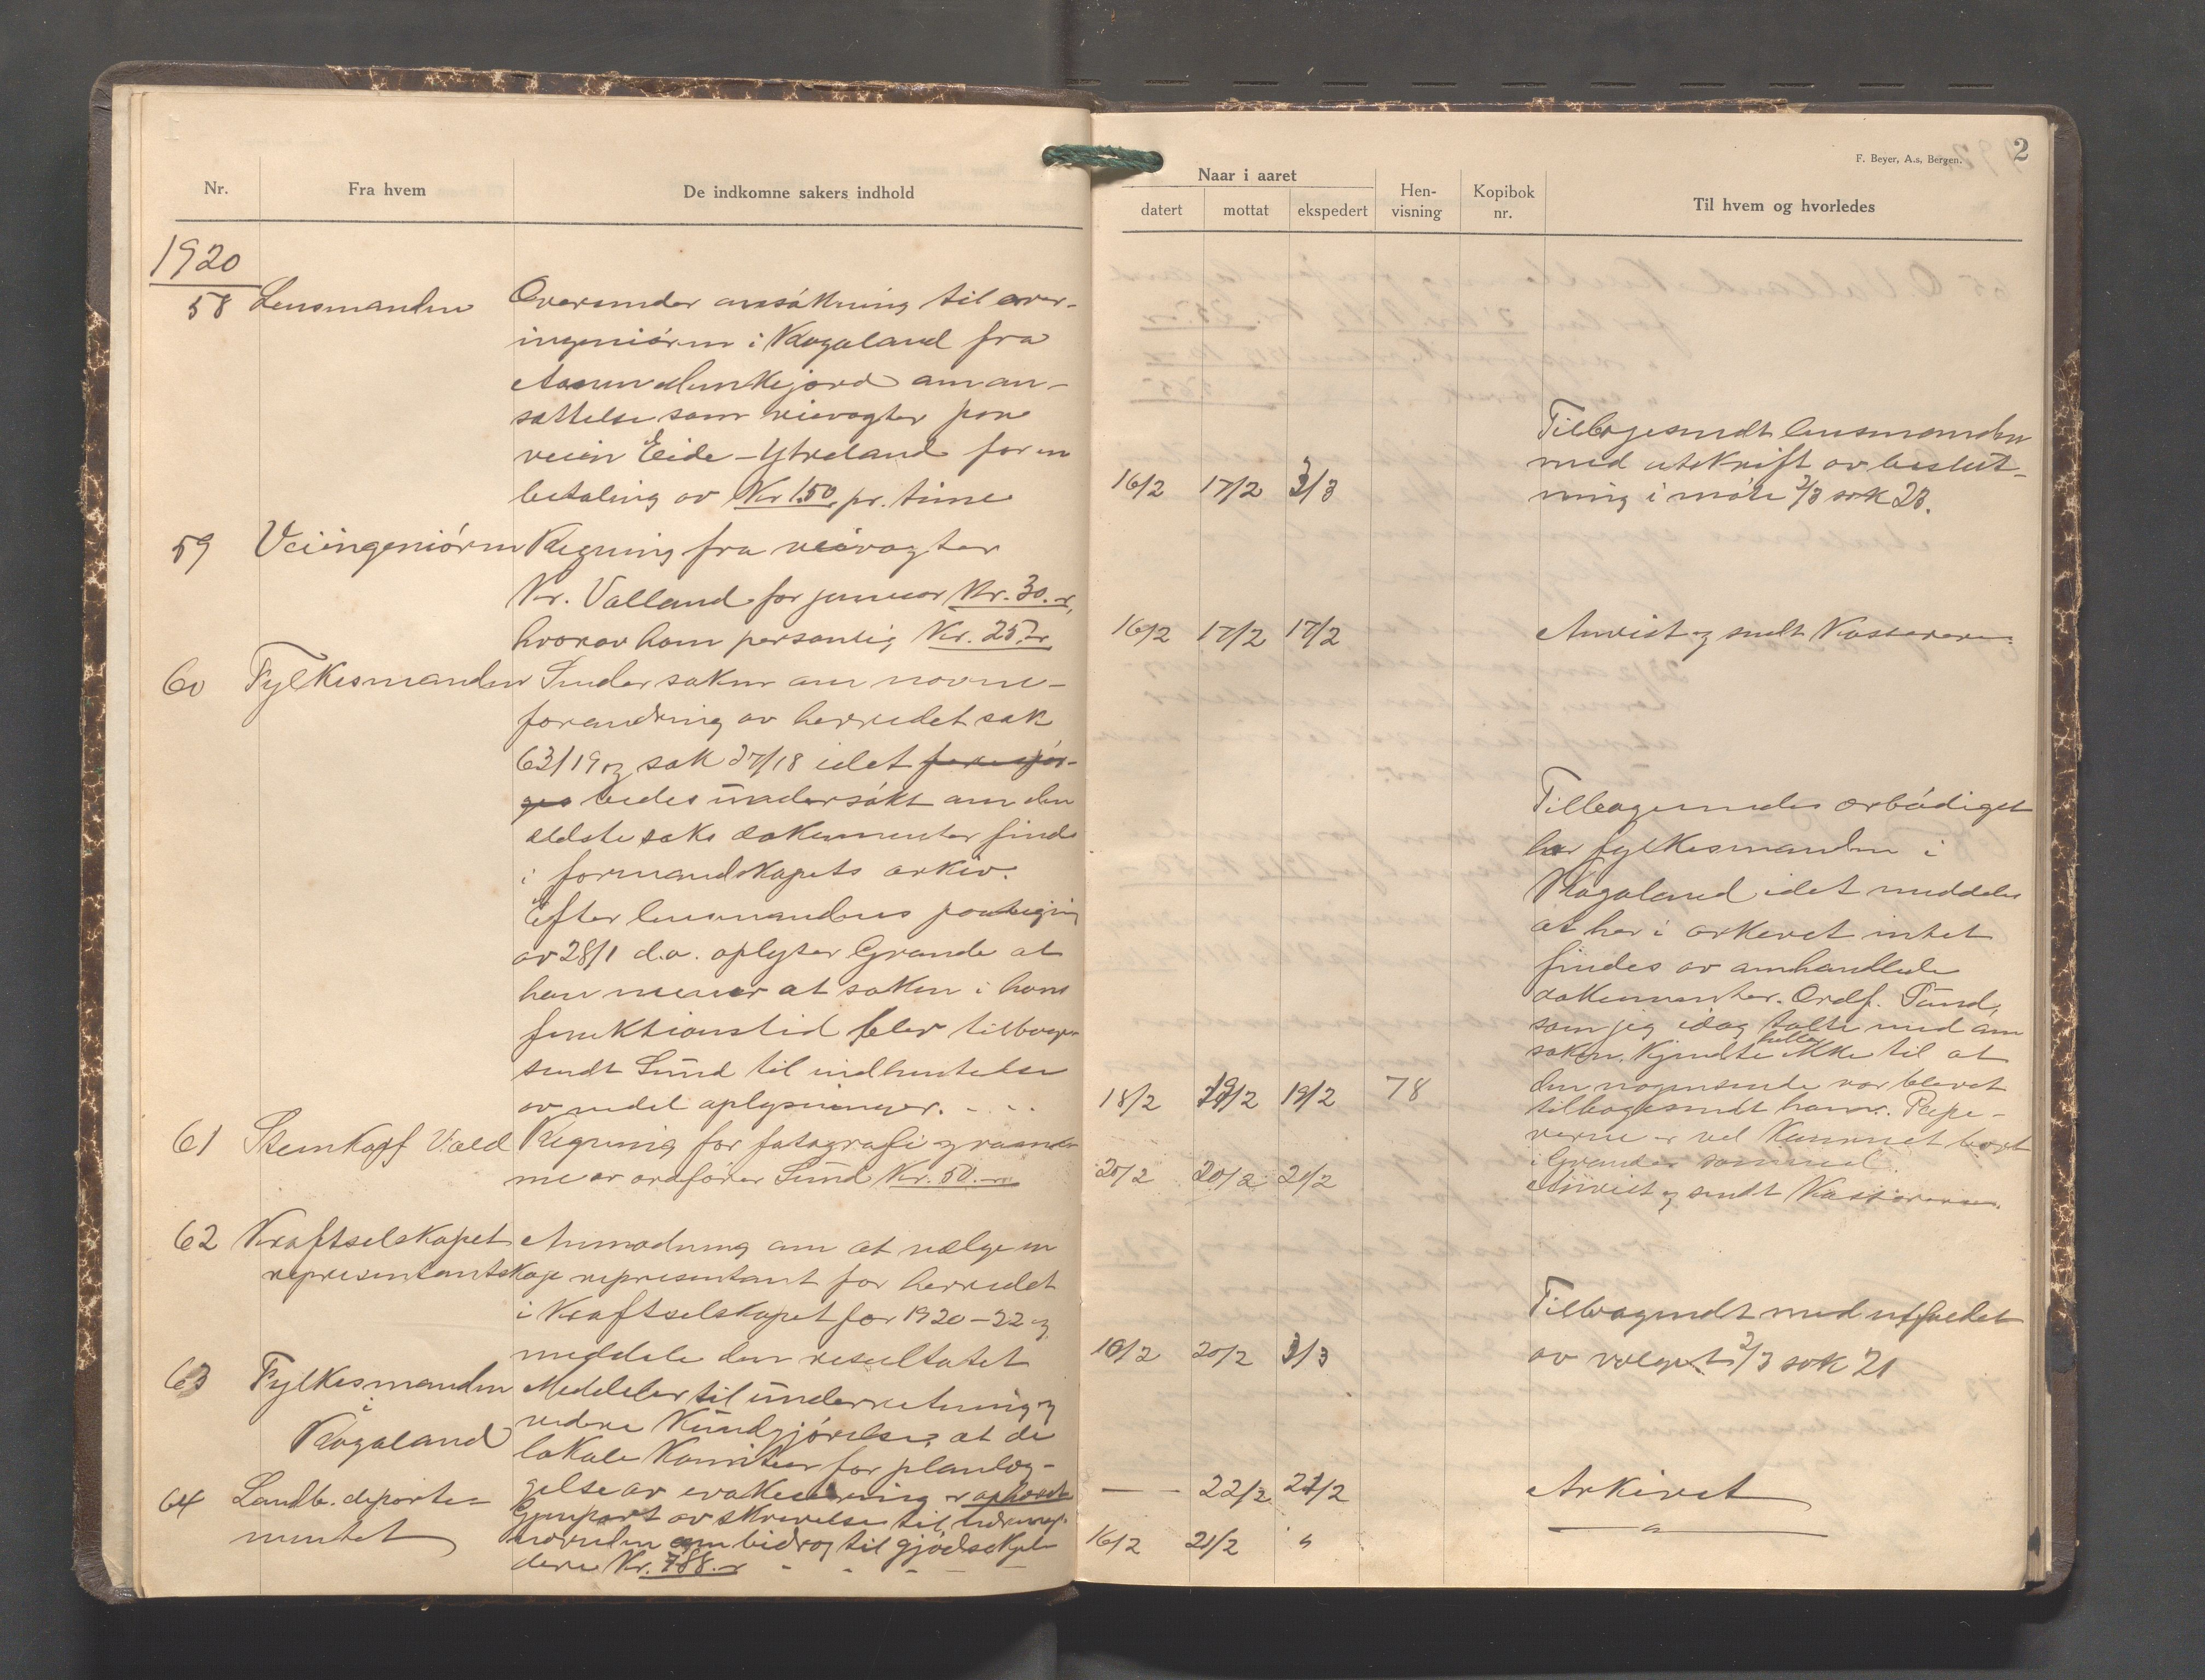 Nr.
Fra hvem
De indkomne sakers indhold
1920
58 Lensmanden
Oversender ansökning til over-
ingeniören i Rogaland fra
Aamund Lunkejord om an-
sættelse som veivogter paa
veien Eide - Ytreland for en
betaling av Kr 1.50 pr. time
59 Veiingeniören
Regning fra veivogter
Kr. Valland for januar Kr. 30.-
hvorav ham personlig Kr. 25.-
60 Fylkesmanden
Sender saken om navne-
forandring av herredet sak
63/19 og sak 27/18 idet forespör-
ges bedes undersökt om den
ældste saks dokumenter finds
i formandskapets arkiv.
Efter lensmandens paategning
av 28/1 d.a. oplyser Grande at
han mener at saken i hans
funktionstid blev tilbage-
sendt Sund til indhentelse
av endel oplysninger. - - -
61 Steinkopf Wald
Regning for fotografi og ramme
me av ordförer Sund Kr. 50.-
62 Kraftselskapets
representantskap
Anmodning om at vælge en
representant for herredet
i Kraftselskapet for 1920-22 og
meddele dem resultatet
63 Fylkesmanden
i
Rogaland
Meddeler til underretning og
videre Kundgjörelse, at de
lokale Komiteer for planlæg-
gelse av evakuering er ophævet
64 Landb. departe-
mentet
Gjenpart av skrivelse til
om bidrag til gjödselkjel-
dere Kr. 788.-
2
F. Beyer, A.s, Bergen.
Naar i aaret
datert
mottat
ekspedert
Hen-
visning
Kopibok
nr.
Til hvem og hvorledes
16/2 17/2 3/3
Tilbagesendt lensmanden
med utskrift av beslut-
ning i möte 2/3 sak 23.
16/2 17/2 17/2
Anvist og sendt Kassereren.
Tilbagesendes ærbödigst
hr fylkesmanden i
Rogaland idet meddeles
at her i arkivet intet
findes av omhandlede
dokumenter. Ordf. Sund,
som jeg idag talte med om
saken, kjendte heller ikke til at
den nogensinde var blevet
tilbagesendt ham. Papi-
rerne er vel kommet bort
i Grandes
18/2 19/2 19/2 78
20/2 20/2 21/2
Anvist og sendt Kassereren.
10/2 20/2 3/3
Tilbagesendt med utfaldet
av valget 2/3 sak 21
— - 22/2 21/2
Arkivet
16/2 21/2 "
— " —